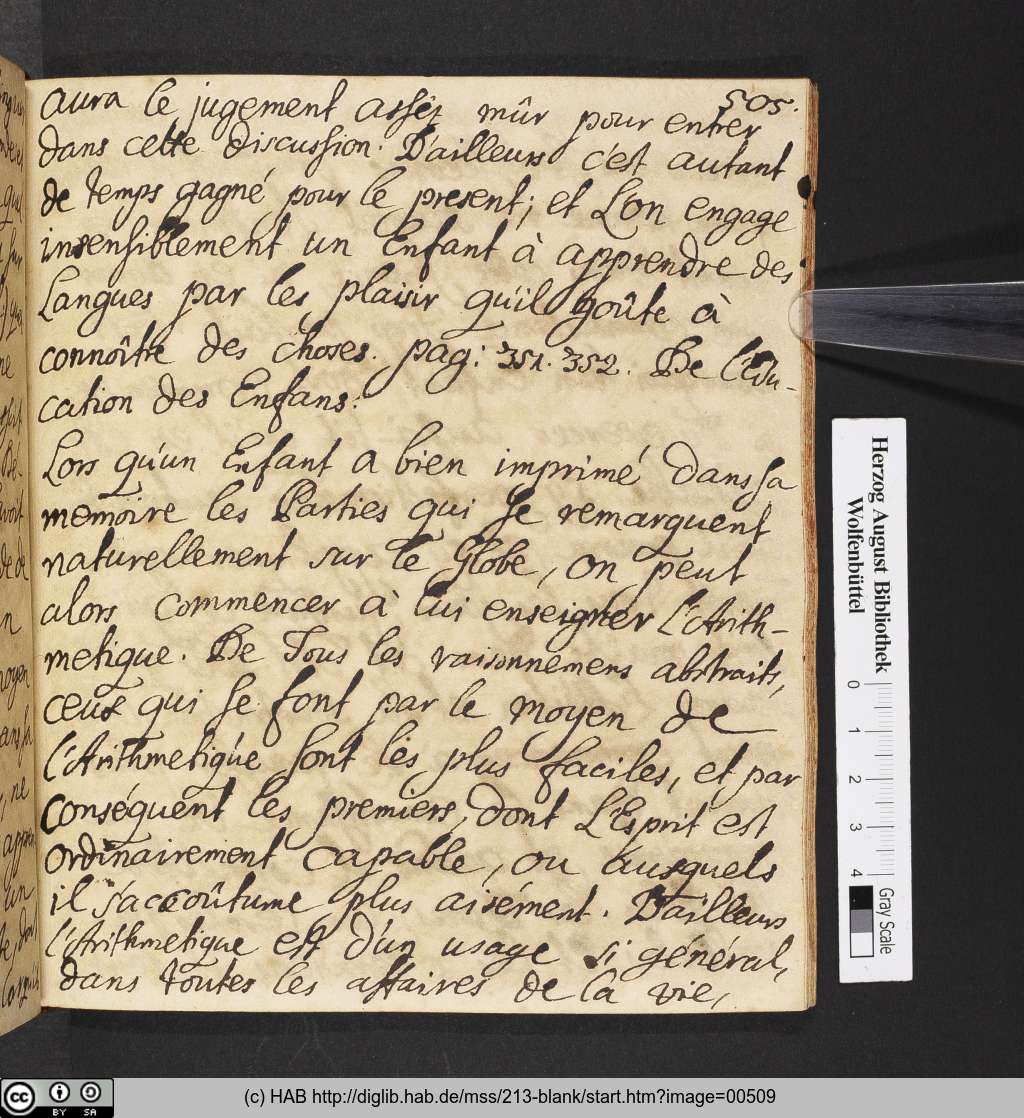 505.
aura le jugement assêz mûr pour entrer
dans cette discussion. D'ailleurs c'est autant
de temps gagné pour le present; et L'on engage
insensiblement un Enfant à apprendre des
Langues par les plaisir qu'il goûte à
connoître des choses. pag: 351. 352. De l'Edu-
cation des Enfans:
Lors qu'un Enfant a bien imprimé dans sa
memoire les Parties qui se remarquent
naturellement sur le Globe, on peut
alors commencer à lui enseigner l'Arith-
metique. De Tous les raisonnemens abstraits,
ceux qui se font par le moyen de
l'Arithmetique sont lès plus faciles, et par
conséquent les premiers, dont L'Esprit est
ordinairement capable, ou ausquels
il s'accoûtume plus aisément. D'ailleurs
l'Arithmetique est d'un usage si général,
dans toutes les affaires de la vie,
Herzog August Bibliothek
Wolfenbüttel
0 1 2 3 4
Gray Scale
cc BY SA
(c) HAB http://diglib.hab.de/mss/213-blank/start.htm?image=00509